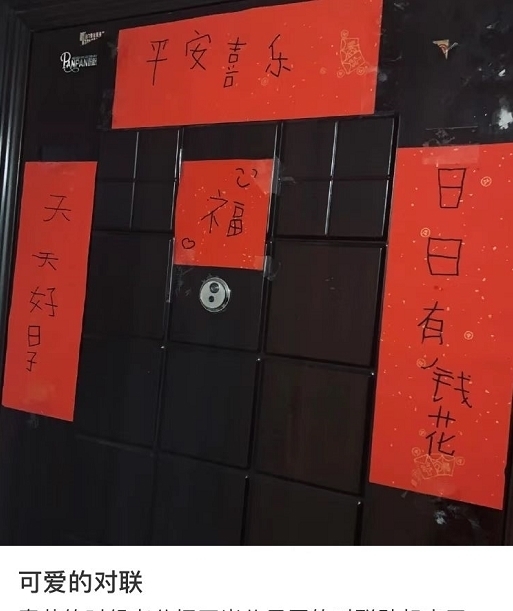 平安喜乐
PANPAN
福
天天好日子
日日有钱花
可爱的对联